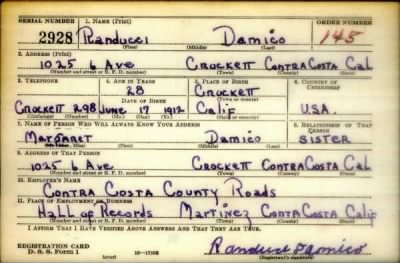 SERIAL NUMBER 1. NAME (Print) ORDER NUMBER
2928 Randucci Damico 145
(First) (Middle) (Last)
2. ADDRESS (Print)
1025 6 Ave Crockett Contra Costa Cal
(Number and street or R. F. D. number) (Town) (County) (State)
3. TELEPHONE 4. AGE IN YEARS 5. PLACE OF BIRTH 6. COUNTRY OF CITIZENSHIP
28 Crockett
DATE OF BIRTH (Town or county)
Crockett 298 June 17 1912 Calif U.S.A.
7. NAME OF PERSON WHO WILL ALWAYS KNOW YOUR ADDRESS 8. RELATIONSHIP OF THAT PERSON
Margaret Damico SISTER
9. ADDRESS OF THAT PERSON
1025 6 Ave Crockett Contra Costa Cal
(Number and street or R. F. D. number) (Town) (County) (State)
10. EMPLOYER'S NAME
Contra Costa County Roads
11. PLACE OF EMPLOYMENT OR BUSINESS
Hall of Records Martinez Contra Costa Calif
(Number and street or R. F. D. number) (Town) (County) (State)
I AFFIRM THAT I HAVE VERIFIED ABOVE ANSWERS AND THAT THEY ARE TRUE.
REGISTRATION CARD
D. S. S. Form 1 (over) (Registrant's signature)
Randucci Damico